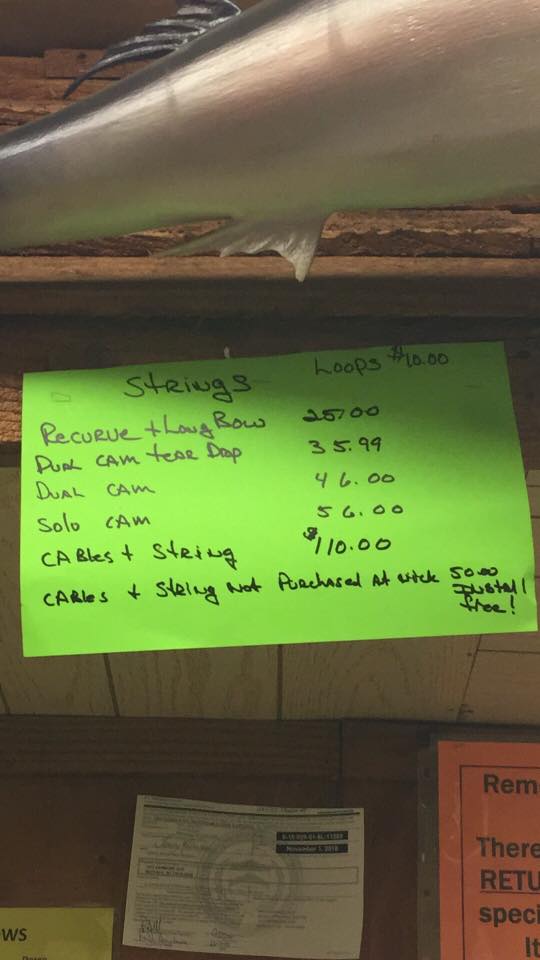 Strings Loops $10.00
Recurve + Long Bow 25.00
Dual Cam tear Drop 35.99
Dual Cam 46.00
Solo Cam 56.00
Cables + String $110.00
Cables + String Not Purchased At Wick 50.00
Install
free!
November 1, 2018
Rem
There
RETU
speci
It
WS